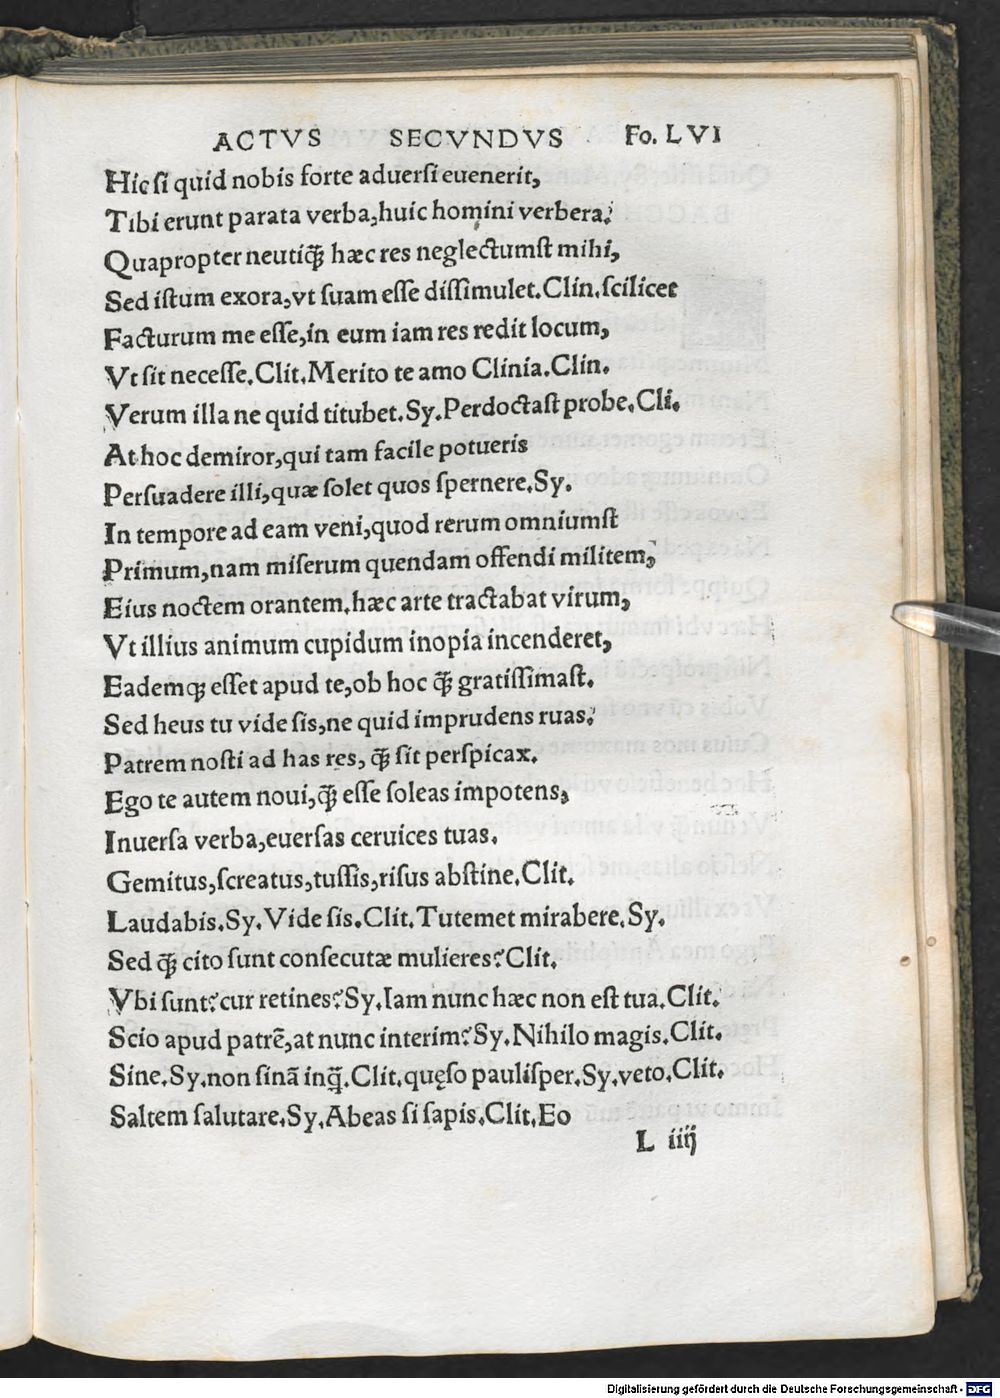 ACTVS SECVNDVS Fo. LVI
Hic ſi quid nobis forte aduerſi euenerit,
Tibi erunt parata verba, huic homini verbera.
Quapropter neutiꝙ̃ hæc res neglectumſt mihi,
Sed iſtum exora, vt ſuam eſſe diſſimulet. Clin. ſcilicet
Facturum me eſſe, in eum iam res redit locum,
Vt ſit neceſſe. Clit. Merito te amo Clinia. Clin.
Verum illa ne quid titubet. Sy. Perdoctaſt probe. Cli.
At hoc demiror, qui tam facile potueris
Perſuadere illi, quæ ſolet quos ſpernere. Sy.
In tempore ad eam veni, quod rerum omniumſt
Primum, nam miſerum quendam offendi militem,
Eius noctem orantem. hæc arte tractabat virum,
Vt illius animum cupidum inopia incenderet,
Eademq; eſſet apud te, ob hoc ꝙ̃ gratiſſimaſt.
Sed heus tu vide ſis, ne quid imprudens ruas.
Patrem noſti ad has res, ꝙ̃ ſit perſpicax.
Ego te autem noui, ꝙ̃ eſſe ſoleas impotens,
Inuerſa verba, euerſas ceruices tuas.
Gemitus, ſcreatus, tuſſis, riſus abſtine. Clit.
Laudabis. Sy. Vide ſis. Clit. Tutemet mirabere. Sy.
Sed ꝙ̃ cito ſunt conſecutæ mulieres? Clit.
Vbi ſunt? cur retines? Sy. Iam nunc hæc non eſt tua. Clit.
Scio apud patrē, at nunc interim? Sy. Nihilo magis. Clit.
Sine. Sy. non ſinā inꝗ̃. Clit. quęſo pauliſper. Sy. veto. Clit.
Saltem ſalutare. Sy. Abeas ſi ſapis. Clit. Eo
L iiij
Digitalisierung gefördert durch die Deutsche Forschungsgemeinschaft - DFG